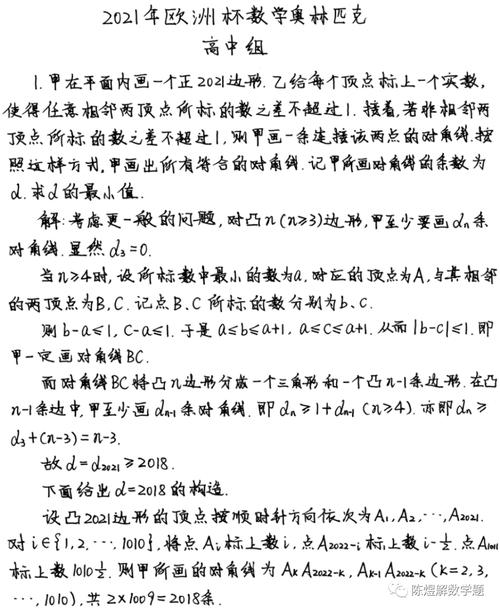 2021年欧洲杯数学奥林匹克
高中组
1. 甲在平面内画一个正2021边形. 乙给每个顶点标上一个实数,
使得任意相邻两顶点所标的数之差不超过1. 接着, 若非相邻两
顶点所标的数之差不超过1, 则甲画一条连接该两点的对角线. 按
照这样方式, 甲画出所有符合的对角线. 记甲所画对角线的条数为
d. 求d的最小值.
解: 考虑更一般的问题, 对凸n(n≥3)边形, 甲至少要画dₙ条
对角线. 显然d₃=0.
当n≥4时, 设所标数中最小的数为a, 对应的顶点为A, 与其相邻
的两顶点为B, C. 记点B、C所标的数分别为b、c.
则b-a≤1, c-a≤1. 于是a≤b≤a+1, a≤c≤a+1. 从而|b-c|≤1. 即
甲一定画对角线BC.
而对角线BC将凸n边形分成一个三角形和一个凸n-1条边形. 在凸
n-1条边中, 甲至少画dₙ₋₁条对角线. 即dₙ≥1+dₙ₋₁ (n≥4). 亦即dₙ≥
d₃+(n-3)=n-3.
故d=d₂₀₂₁≥2018.
下面给出d=2018的构造.
设凸2021边形的顶点按顺时针方向依次为A₁, A₂, ⋯, A₂₀₂₁.
对i∈{1, 2, ⋯, 1010}, 将点Aᵢ标上数i, 点A₂₀₂₂₋ᵢ标上数i-½. 点A₁₀₁₁
标上数1010½. 则甲所画的对角线为AₖA₂₀₂₂₋ₖ, Aₖ₋₁A₂₀₂₂₋ₖ (k=2, 3,
⋯, 1010), 共2×1009=2018条.
陈煜解数学题